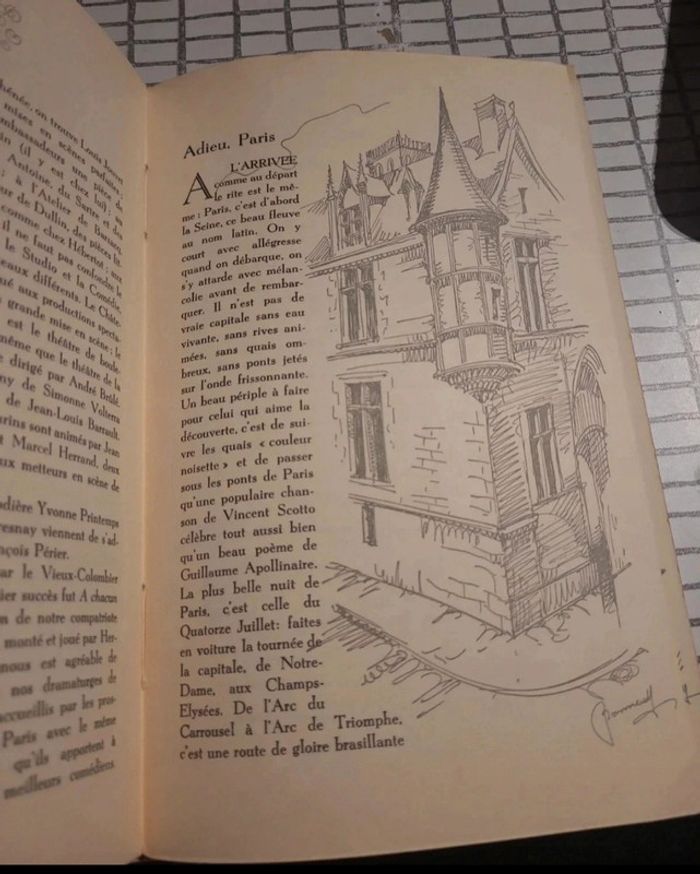 on trouve Louis Jouvet
mises en scènes parfaites;
ambassadeurs une pièce de
(il y est chez lui); au
Antoine, du Sartre et des
; à l'Atelier de Barsacq
de Dullin, des pièces
comme chez Hébertot; aux
il ne faut pas confondre le
le Studio et la Comédie,
eaux différents. Le Châ-
ué aux productions specta-
grande mise en scène; le
est le théâtre de boule-
même que le théâtre de la
dirigé par André Brûlé.
ny de Simonne Volterra
de Jean-Louis Barrault.
urins sont animés par Jean
t Marcel Herrand, deux
ux metteurs en scène de
adière Yvonne Printemps
resnay viennent de s'ad-
nçois Périer.
ar le Vieux-Colombier
ier succès fut A chacun
n de notre compatriote
monté et joué par Her-
nous est agréable de
nos dramaturges de
accueillis par les pros-
Paris avec le même
qu'ils apportent à
meilleurs comédiens
Adieu, Paris
A L'ARRIVEE
comme au départ
le rite est le mê-
me : Paris, c'est d'abord
la Seine, ce beau fleuve
au nom latin. On y
court avec allégresse
quand on débarque, on
s'y attarde avec mélan-
colie avant de rembar-
quer. Il n'est pas de
vraie capitale sans eau
vivante, sans rives ani-
mées, sans quais om-
breux, sans ponts jetés
sur l'onde frissonnante.
Un beau périple à faire
pour celui qui aime la
découverte, c'est de sui-
vre les quais « couleur
noisette » et de passer
sous les ponts de Paris
qu'une populaire chan-
son de Vincent Scotto
célèbre tout aussi bien
qu'un beau poème de
Guillaume Apollinaire.
La plus belle nuit de
Paris, c'est celle du
Quatorze Juillet: faites
en voiture la tournée de
la capitale, de Notre-
Dame, aux Champs-
Elysées. De l'Arc du
Carrousel à l'Arc de Triomphe,
c'est une route de gloire brasillante